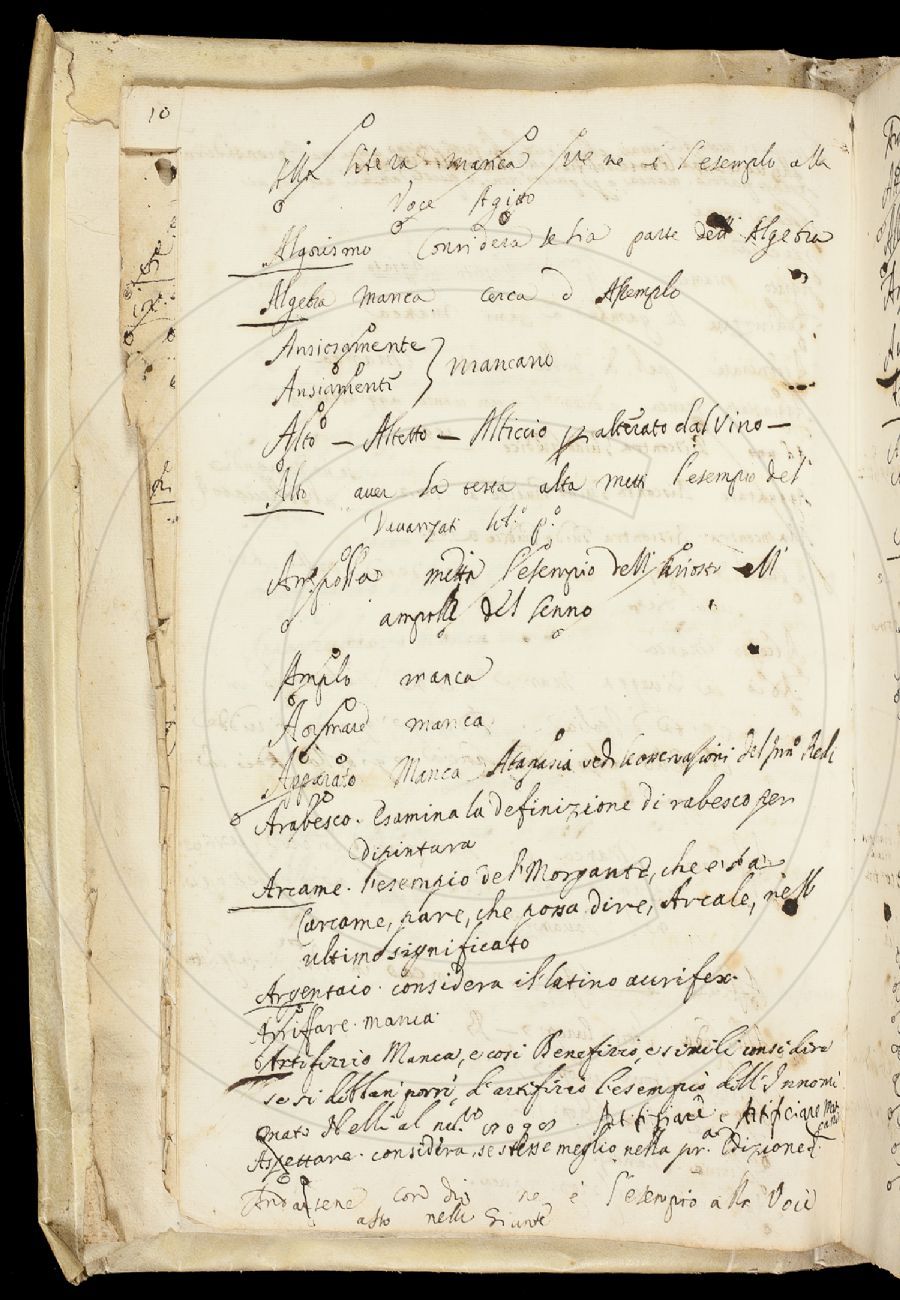 10
Alla litera manca sve ne è l'esempio alla
Voce Agitto
Algorismo Considera se sia parte dell' Algebra
Algebra manca cerca d Assemplo
Ansiosamente } mancano
Ansiamente
Alto — Altetto — Alticcio p alterato dal vino —
Alto aver la testa alta metti l'esempio del
Davanzati lib.º p.º
Ampolla metti l'esempio dell' Ariosto all
ampolle del senno
Amplo manca
Aormare manca
Apparato Manca Atanasia vedi le osservazioni del Redi
Arabesco. Esamina la definizione di rabesco per
dipintura
Arcame. l'esempio del Morgante, che è sta
Carcame, pare, che possa dire, Arcale, nell
ultimo significato
Argentaio. considera il latino aurifex.
Arriffare. manca.
Artifizio Manca, e cosi Benefizio, e simili considira
se si debban porri, d'artifizio l'esempio dell' Innomi
nato Nelli al nu.
Aspettare. considera, se stesse meglio nella pr.ª Edizione
Andarsene con dio ne è l'esempio alla Voce
asto nelle Giunte